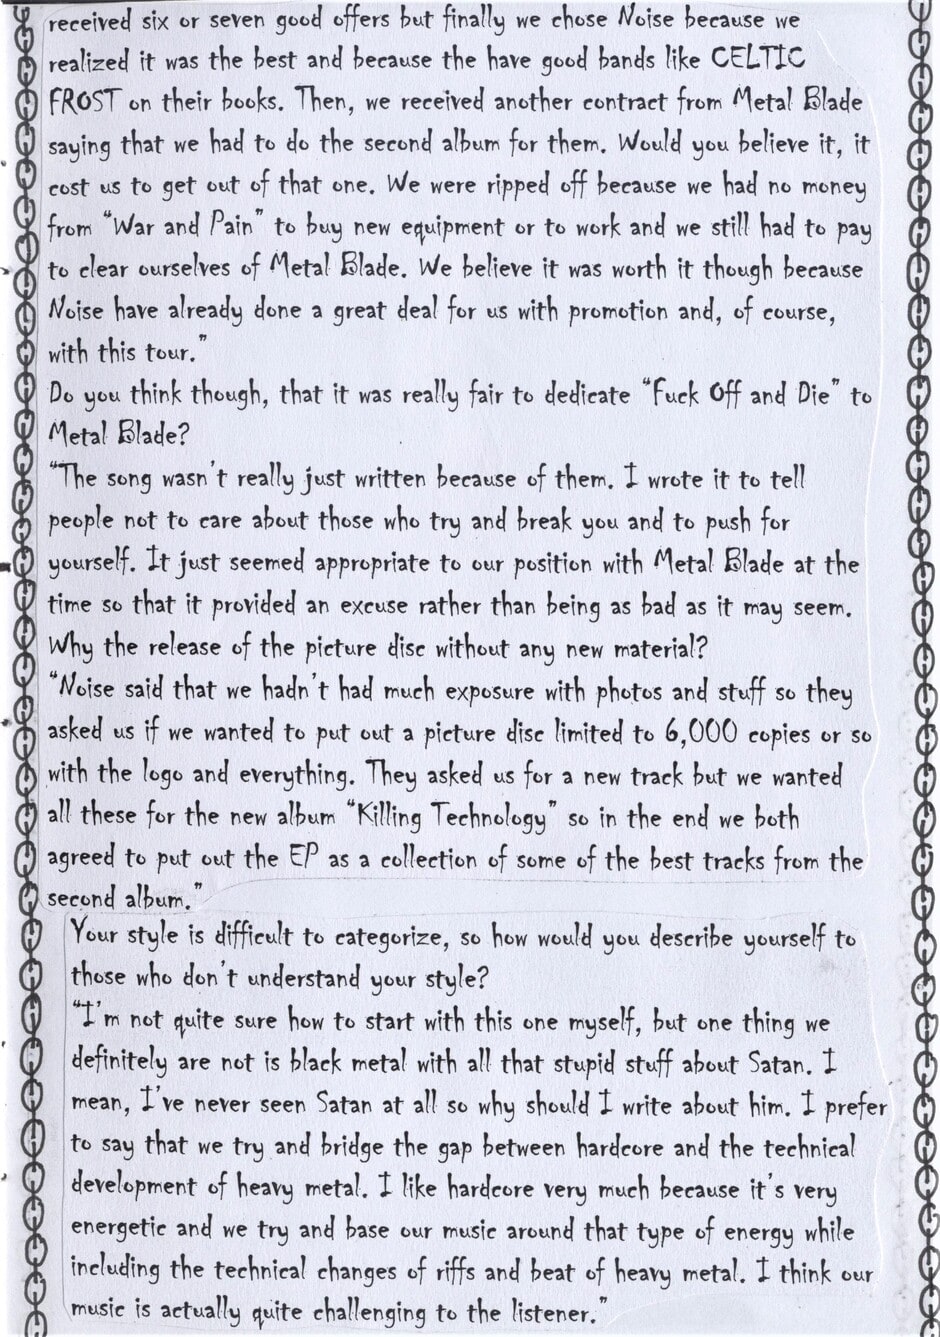 received six or seven good offers but finally we chose Noise because we
realized it was the best and because the have good bands like CELTIC
FROST on their books. Then, we received another contract from Metal Blade
saying that we had to do the second album for them. Would you believe it, it
cost us to get out of that one. We were ripped off because we had no money
from "War and Pain" to buy new equipment or to work and we still had to pay
to clear ourselves of Metal Blade. We believe it was worth it though because
Noise have already done a great deal for us with promotion and, of course,
with this tour."
Do you think though, that it was really fair to dedicate "Fuck Off and Die" to
Metal Blade?
"The song wasn't really just written because of them. I wrote it to tell
people not to care about those who try and break you and to push for
yourself. It just seemed appropriate to our position with Metal Blade at the
time so that it provided an excuse rather than being as bad as it may seem.
Why the release of the picture disc without any new material?
"Noise said that we hadn't had much exposure with photos and stuff so they
asked us if we wanted to put out a picture disc limited to 6,000 copies or so
with the logo and everything. They asked us for a new track but we wanted
all these for the new album "Killing Technology" so in the end we both
agreed to put out the EP as a collection of some of the best tracks from the
second album."
Your style is difficult to categorize, so how would you describe yourself to
those who don't understand your style?
"I'm not quite sure how to start with this one myself, but one thing we
definitely are not is black metal with all that stupid stuff about Satan. I
mean, I've never seen Satan at all so why should I write about him. I prefer
to say that we try and bridge the gap between hardcore and the technical
development of heavy metal. I like hardcore very much because it's very
energetic and we try and base our music around that type of energy while
including the technical changes of riffs and beat of heavy metal. I think our
music is actually quite challenging to the listener."